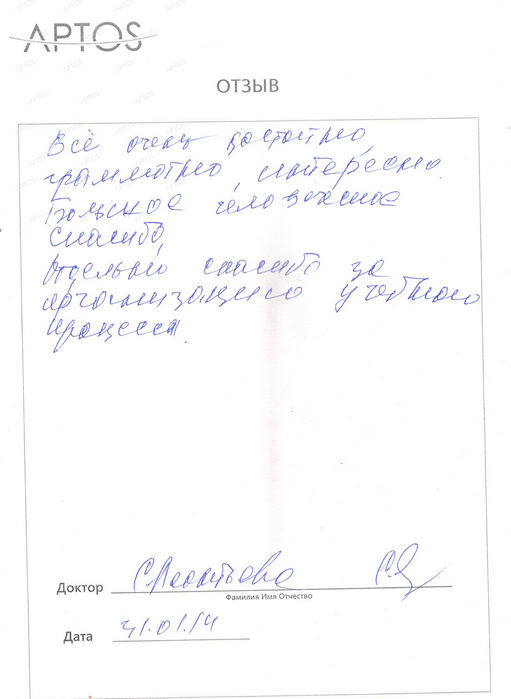 APTOS
ОТЗЫВ
Всё очень достойно,
грамотно, интересно.
Большое человеческое
спасибо,
Отдельно спасибо за
организацию учебного
процесса
Доктор Леонтьева
Фамилия Имя Отчество
Дата 31.01.14